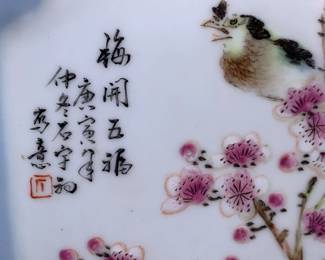 梅開五福
庚寅年
仲冬石宇初
寫意